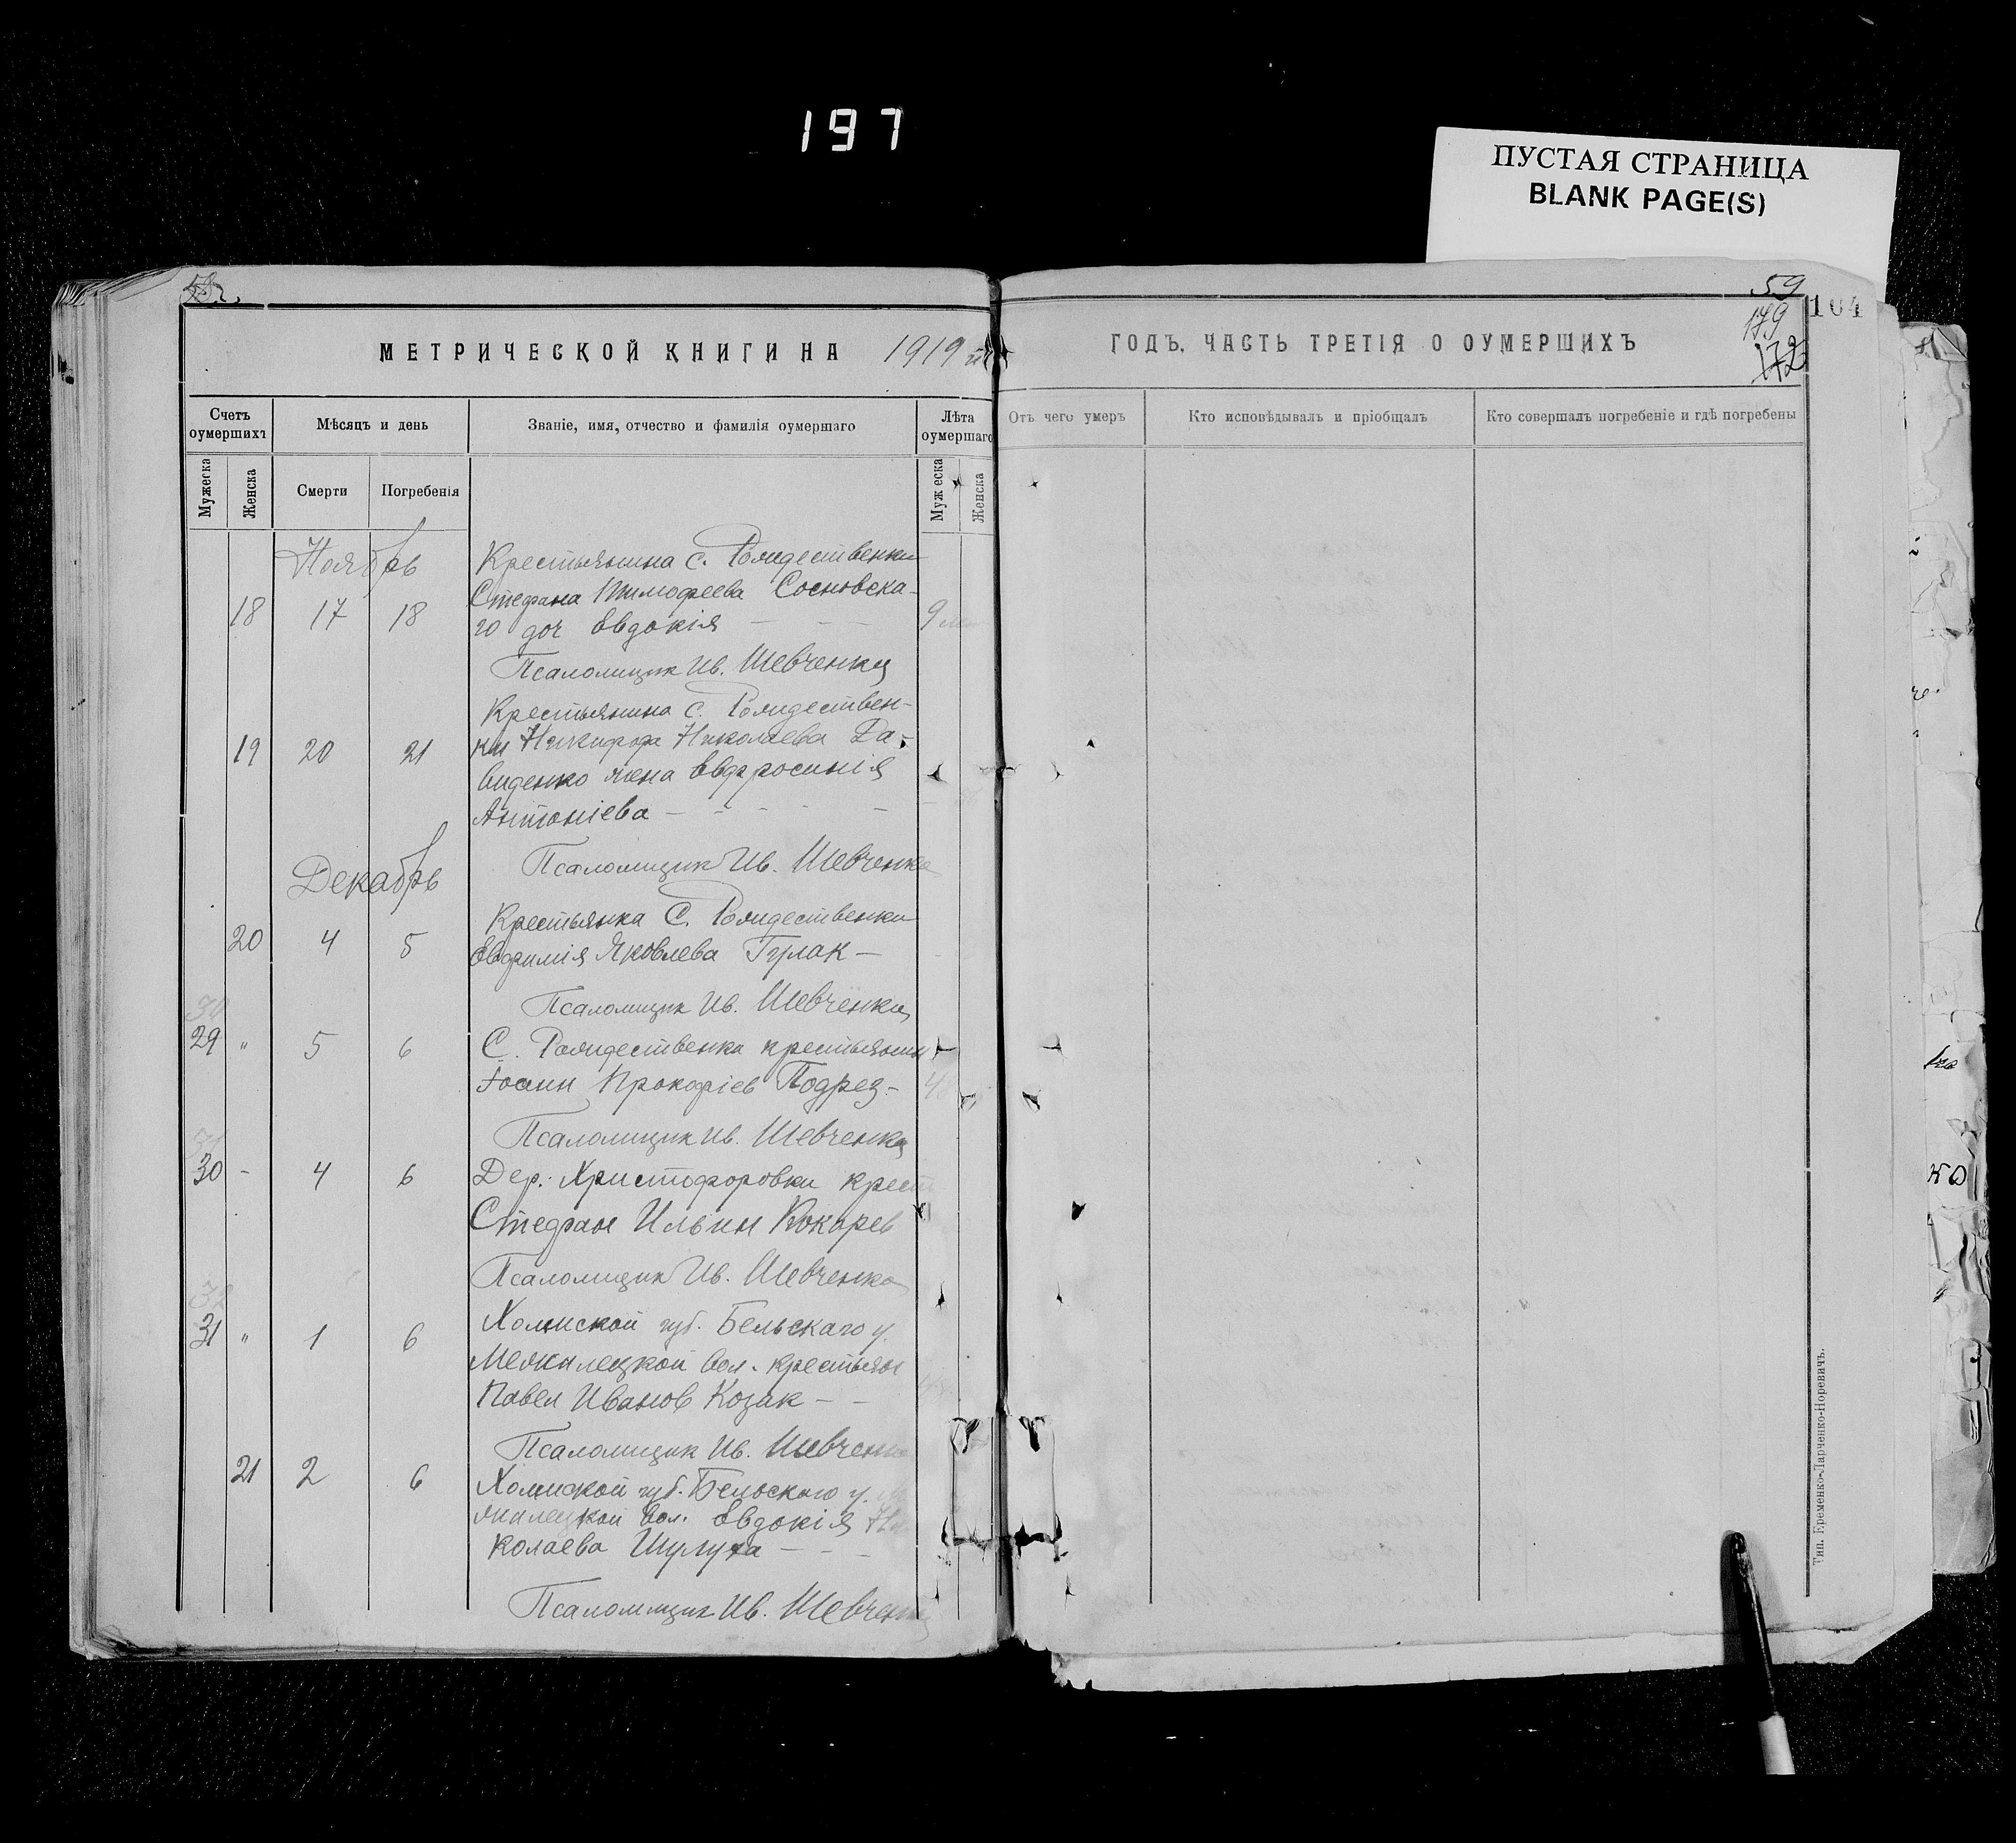 197
ПУСТАЯ СТРАНИЦА
BLANK PAGE(S)
59
104
179
172
МЕТРИЧЕСКОЙ КНИГИ НА 1919 й
ГОДЪ, ЧАСТЬ ТРЕТІЯ О ОУМЕРШИХЪ
Счетъ оумершихъ
Мѣсяцъ и день
Званіе, имя, отчество и фамилія оумершаго
Лѣта оумершаго
Отъ чего умеръ
Кто исповѣдывалъ и пріобщалъ
Кто совершалъ погребеніе и гдѣ погребены
Мужеска
Женска
Смерти
Погребенія
Мужеска
Женска
Ноябрь
Крестьянина с. Рождественки
Стефана Тимофеева Сосновска-
18 17 18 го доч Евдокія — — 9
Псаломщик Ив. Шевченко
Крестьянина с. Рождествен-
19 20 21 ки Никифора Николаева Да-
виденко жена Евфросинія
Антоніева — - - - —
Псаломщик Ив. Шевченко
Декабрь
Крестьянка С. Рождественки
20 4 5 Евфимія Яковлева Гулак —
Псаломщик Ив. Шевченко
29 " 5 6 С. Рождественка крестьянин
Іоанн Прокофіев Подрез -
Псаломщик Ив. Шевченко
30 - 4 6 Дер. Христофоровки крест
Стефан Ильин Кокарев
Псаломщик Ив. Шевченко
Холмской губ. Бельскаго у.
31 " 1 6 Межилецкой вол. крестьян
Павел Иванов Козак — —
Псаломщик Ив. Шевченко
21 2 6 Холмской губ. Бельскаго у.
жилецкой вол. Евдокія Ни
колаева Шулуха — — —
Псаломщик Ив. Шевченко
Тип. Еременко-Ларченко-Норевичъ.